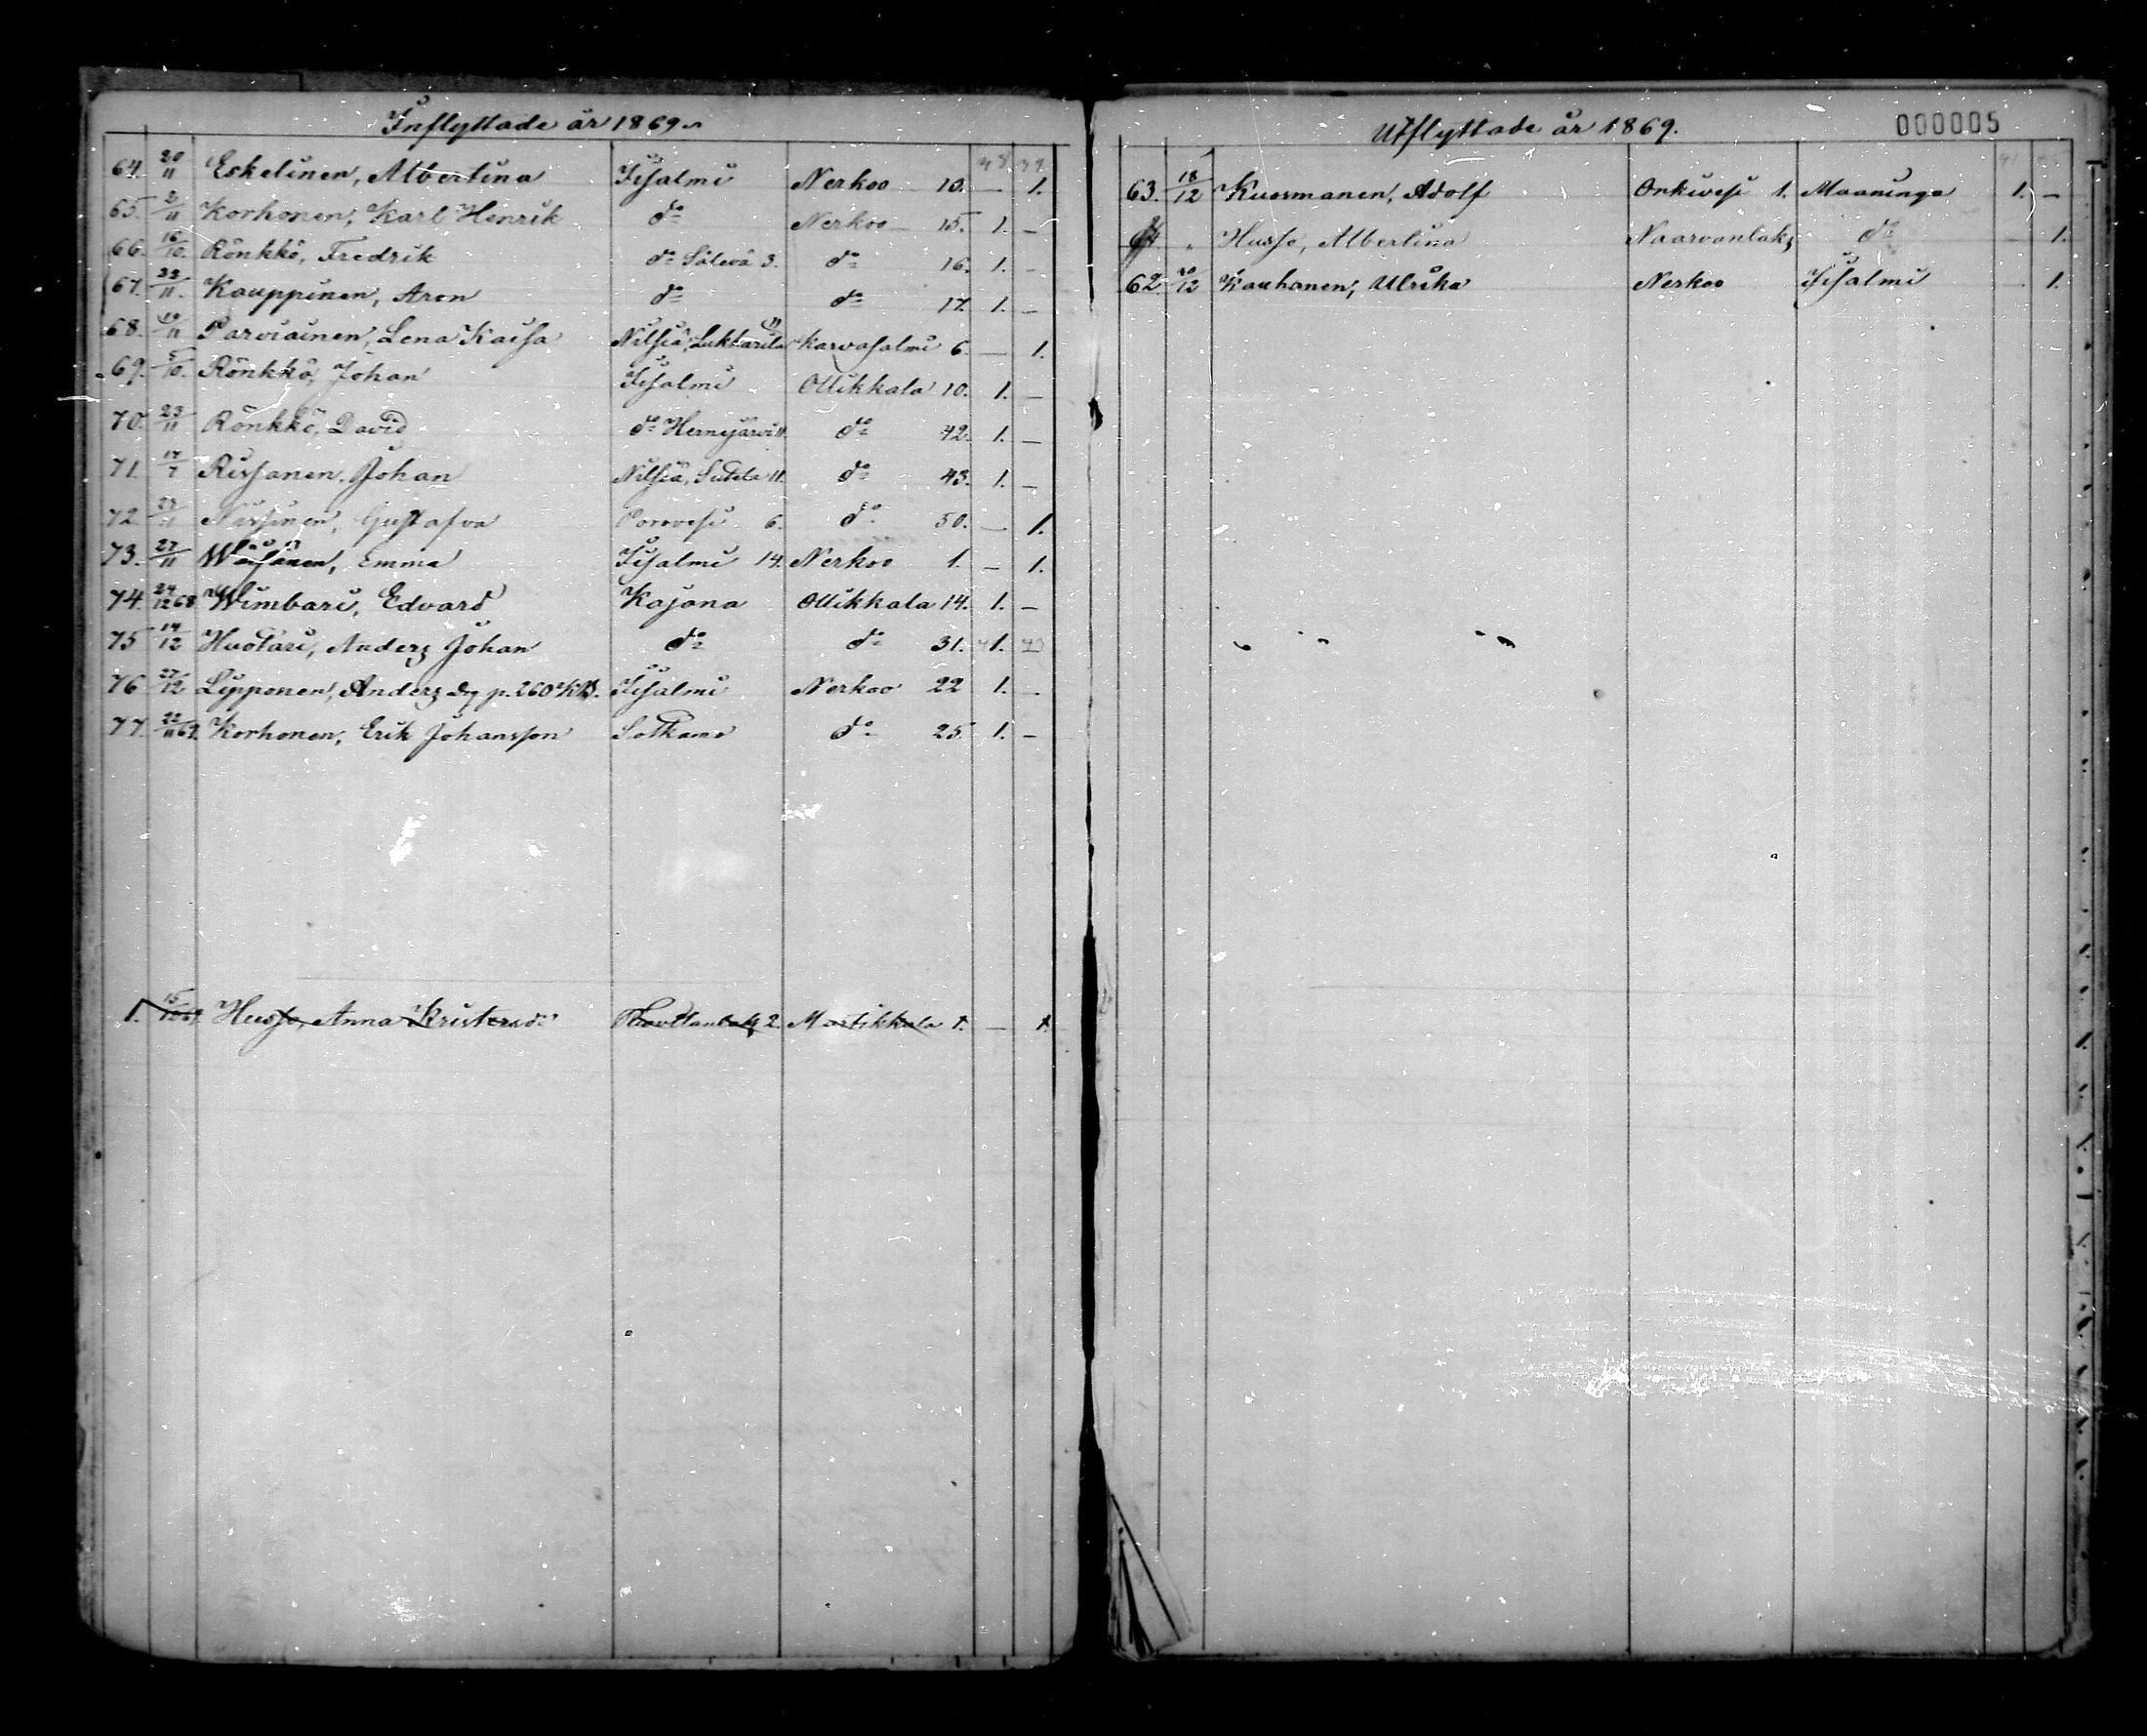 Inflyttade år 1869.
43 39
64. 20/11 Eskelinen, Albertina Iisalmi Nerkoo 10. — 1.
65. 2/11 Korhonen, Karl Henrik do Nerkoo 15. 1. —
66. 16/10. Rönkkö, Fredrik do Sälevä 3. do 16. 1. —
67. 22/11. Kauppinen, Aron do do 17. 1. —
68. 19/11 Parviainen, Lena Kaisa Nilsiä, Lukkarila 11 Karvasalmi 6. — 1.
69. 5/10. Rönkkö, Johan Iisalmi Ollikkala 10. 1. —
70. 23/11 Rönkkö, David do Hernejärvi 11. do 42. 1. —
71. 17/7 Rissanen, Johan Nilsiä, Sutela 11. do 43. 1. —
72. Nissinen, Gustafva Porovesi 6. do 50. — 1.
73. 27/11 Wäisänen, Emma Iisalmi 14. Nerkoo 1. — 1.
74. 24/12 68 Wimbari, Edvard Kajana Ollikkala 14. 1. —
75 14/12 Huotari, Anders Johan do do 31. 1.
76 27/12 Lipponen, Anders Iisalmi Nerkoo 22 1. —
77. 22/11 69. Korhonen, Erik Johansson Sotkamo do 25. 1. —
1. 15/ Husso, Anna Kristersdr 2. Martikkala 1. — 1.
Utflyttade år 1869.
000005
63. 18/12 Kuosmanen, Adolf Onkivesi 1. Maaninga 1. —
64 " Husso, Albertina Naarvanlaks do — 1.
62. 20/12 Kauhanen, Ulrika Nerkoo Iisalmi — 1.